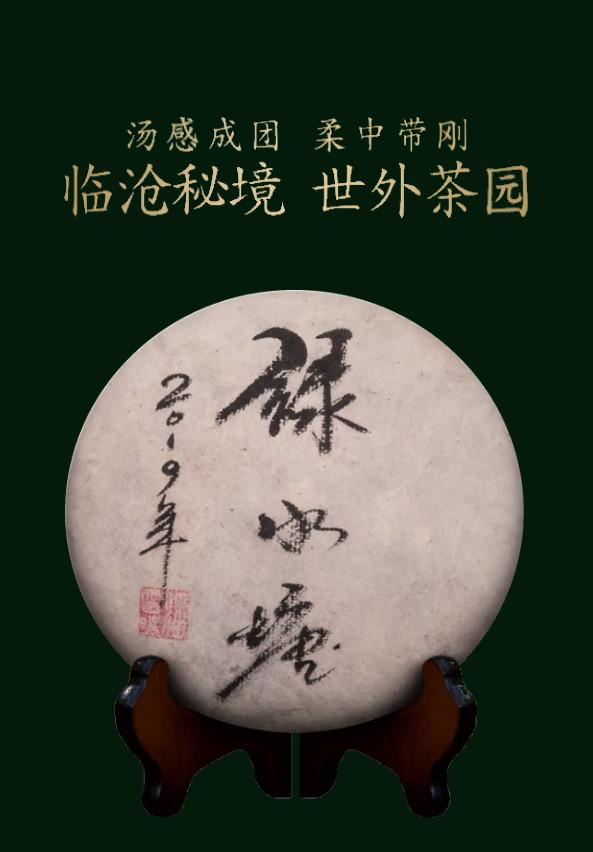 汤感成团 柔中带刚
临沧秘境 世外茶园
绿水塘
2019年